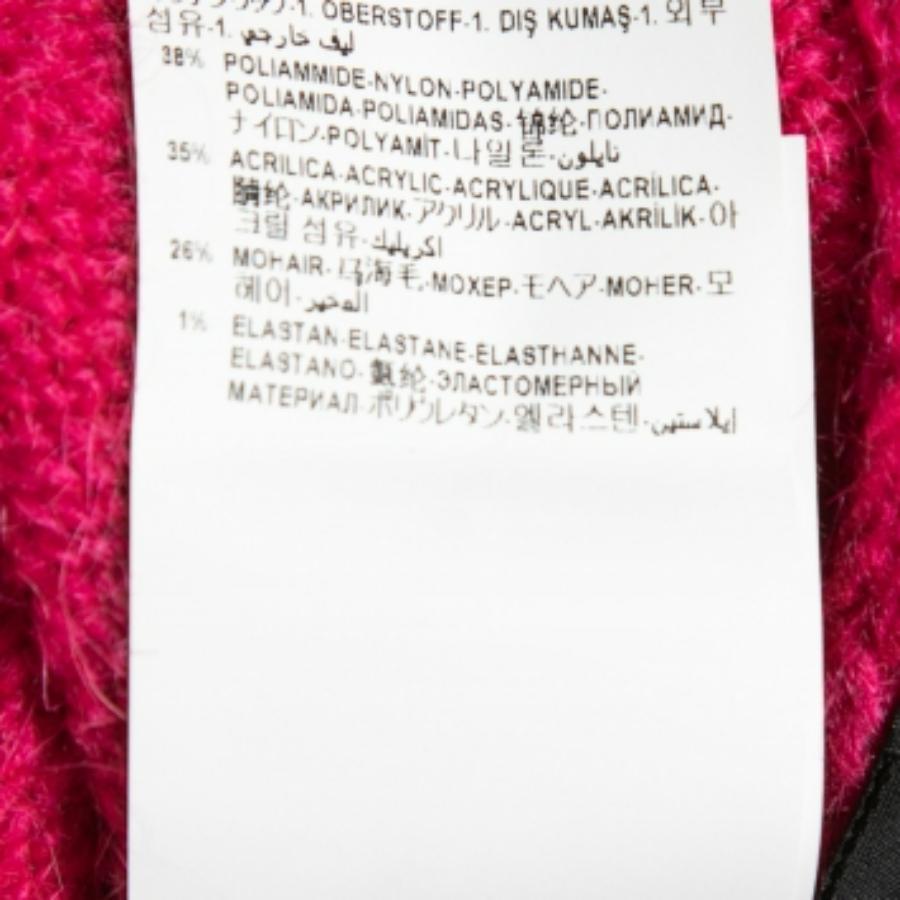 -1. OBERSTOFF-1. DIŞ KUMAŞ-1. 외부
섬유-1. ليف خارجي
38% POLIAMMIDE-NYLON-POLYAMIDE-
POLIAMIDA-POLIAMIDAS-锦纶-ПОЛИАМИД-
ナイロン-POLYAMİT-나일론-نايلون
35% ACRILICA-ACRYLIC-ACRYLIQUE-ACRİLICA-
腈纶-АКРИЛИК-アクリル-ACRYL-AKRİLİK-아
크릴 섬유-اكريليك
26% MOHAIR-马海毛-МОХЕР-モヘア-MOHER-모
헤어-الموهير
1% ELASTAN-ELASTANE-ÉLASTHANNE-
ELASTANO-氨纶-ЭЛАСТОМЕРНЫЙ
МАТЕРИАЛ-ポリウレタン-엘라스텐-إيلاستين